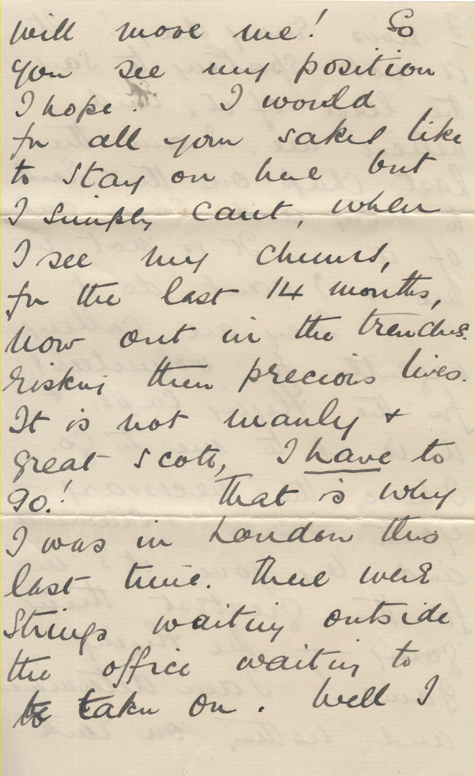 will move me! So
you see my position
I hope. I would
for all your sakes like
to stay on here but
I simply cant, when
I see my chums,
for the last 14 months,
now out in the trenches.
risking their precious lives.
It is not manly +
great scots, I have to
go! That is why
I was in London this
last time. There were
Strings waiting outside
the office waiting to
be taken on. Well I